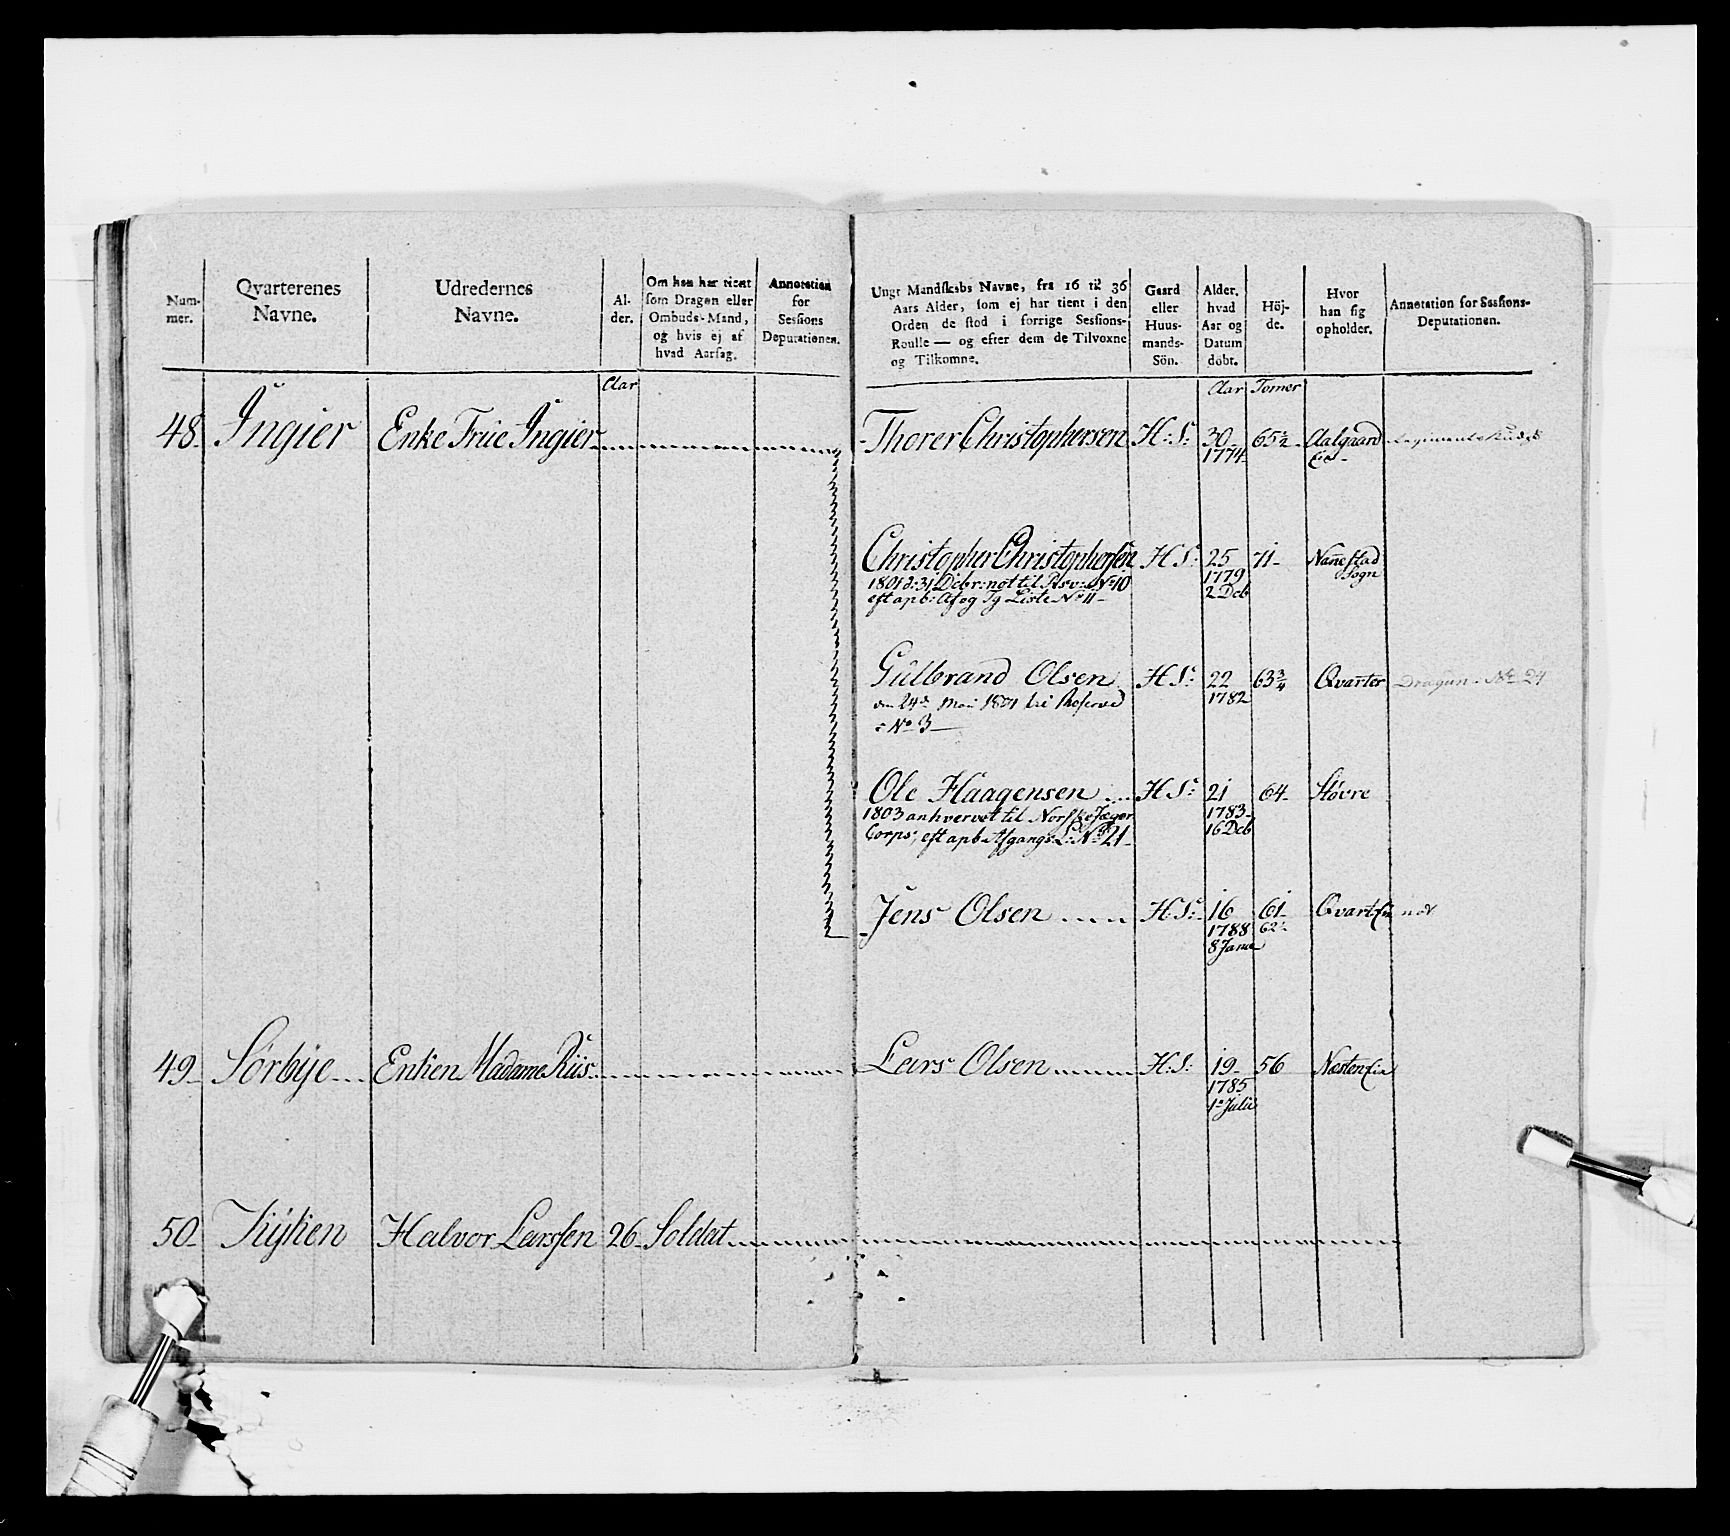 Num-
mer.
Qvarterenes
Navne.
Udredernes
Navne.
Al-
der.
Om han har tient
som Dragon eller
Ombuds-Mand,
og hvis ej af
hvad Aarsag.
Annotation
for
Sessions
Deputationen.
Ungt Mandskabs Navne, fra 16 til 36
Aars Alder, som ej har tient i den
Orden de stod i forrige Sessions-
Roulle — og efter dem de Tilvoxne
og Tilkomne.
Gaard
eller
Huus-
mands-
Sön.
Alder.
hvad
Aar og
Datum
döbt.
Höj-
de.
Hvor
han sig
opholder.
Annotation for Sessions-
Deputationen.
Aar Aar Tomer
48. Ingier Enke Frue Ingier Thorer Christophersen H: S: 30 65½ Aalgaard
1774 Eie
Christopher Christophersen H S: 25 71 Nannestad
1801 d: 31 Decbr: not til Resv: No 10 1779 Sogn
eft apb: Af og Tg Liste No 11 2 Deb
Gulbrand Olsen H S: 22 63¾ Qvarter Dragun No 24
den 24de Mai 1804 til Reserve 1782
No 3
Ole Haagensen H S: 21 64 Støvre
1803 anhvervet til Norske Jæger 1783
Corps, eft apb Afgangs L: No 21 16 Deb
Jens Olsen H S: 16 61 Qvart
1788 62
8 Janu
49 Sørbye Enken Madame Riis Lars Olsen H: S: 19 56
1785
1 Julii
50 Halvor Larssen 26 Soldat